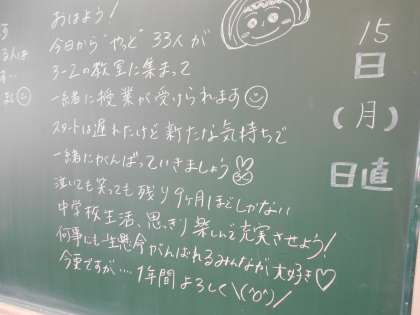 おはよう！
今日から"やっと"33人が
3-2の教室に集まって
一緒に授業が受けられます
スタートは遅れたけど新たな気持ちで
一緒にがんばっていきましょう
泣いても笑っても残り9ヶ月ほどしかない
中学校生活、思いっきり楽しんで充実させよう！
何事にも一生懸命がんばれるみんなが大好き♡
今更ですが‥‥1年間よろしく＼(^o^)／
15
日
(月)
日直